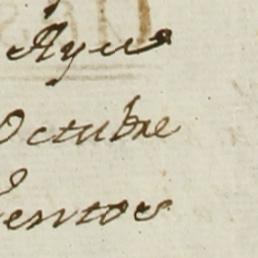 Ayu
Octubre
entos